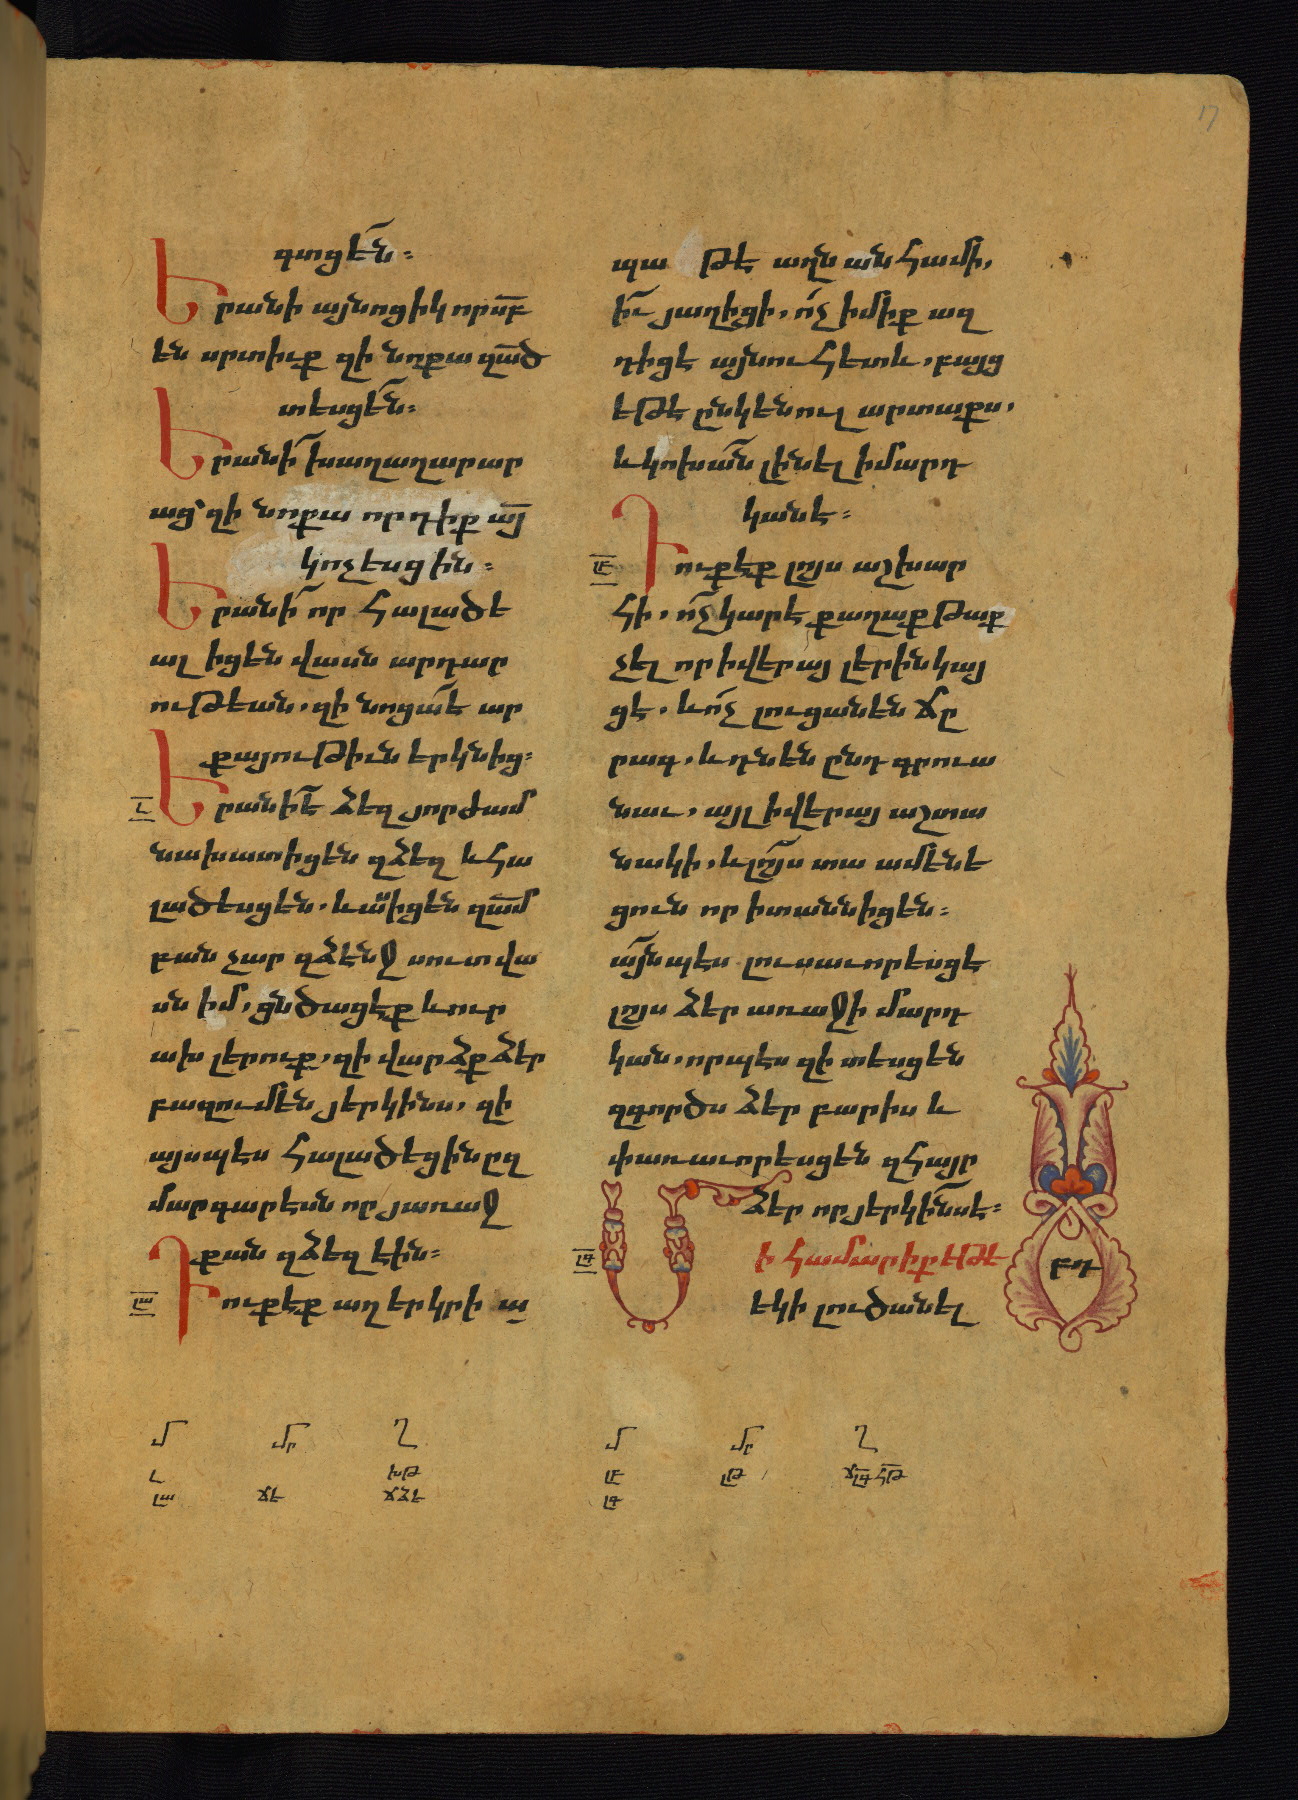 17
գտցէն։
Երանի այնոցիկ որ սբ
են սրտիւք զի նոքա զած
տեսցեն։
Երանի խաղաղարար
աց՝ զի նոքա որդիք այ
կոչեսցին։
Երանի որ հալածե
ալ իցեն վասն արդար
ութեան, զի նոցա է ար
քայութիւն երկնից։
Լ
Երանի է ձեզ յորժամ
նախատիցեն զձեզ և հա
լածեսցեն. և ասիցեն զամ
բան չար զձէնջ սուտ վա
սն իմ, ցնծացէք և ուր
ախ լերուք, զի վարձք ձեր
բազում են յերկինս, զի
այսպէս հալածեցին ըզ
մարգարէսն որ յառաջ
քան զձեզ էին։
ԼԱ
Դուք էք աղ երկրի ա
պա թէ աղն անհամի,
իւ յաղիցի, ոչ իմիք ազ
դիցէ այնուհետև, բայց
եթէ ընկենուլ արտաքս,
և կոխան լինել ի մարդ
կանէ։
ԼԲ
Դուք էք լոյս աշխար
հի, ոչ կարէ քաղաք թաք
չել որ ի վերայ լերին կայ
ցէ. և ոչ լուցանեն ճը
րագ, և դնեն ընդ գրուա
նաւ, այլ ի վերայ աշտա
նակի, և լոյս տա ամենե
ցուն որ ի տանն իցեն։
այնպէս լուսաւորեսցէ
լոյս ձեր առաջի մարդ
կան, որպէս զի տեսցեն
զգործս ձեր բարիս և
փառաւորեսցեն զհայր
ձեր որ յերկինս է։
ԼԳ
Մի համարիք եթէ
եկի լուծանել
բդ
Մ Մր Ղ
Լ խթ
ԼԱ ճե ճձե
Մ Մր Ղ
ԼԲ լթ ճլգ հթ
ԼԳ